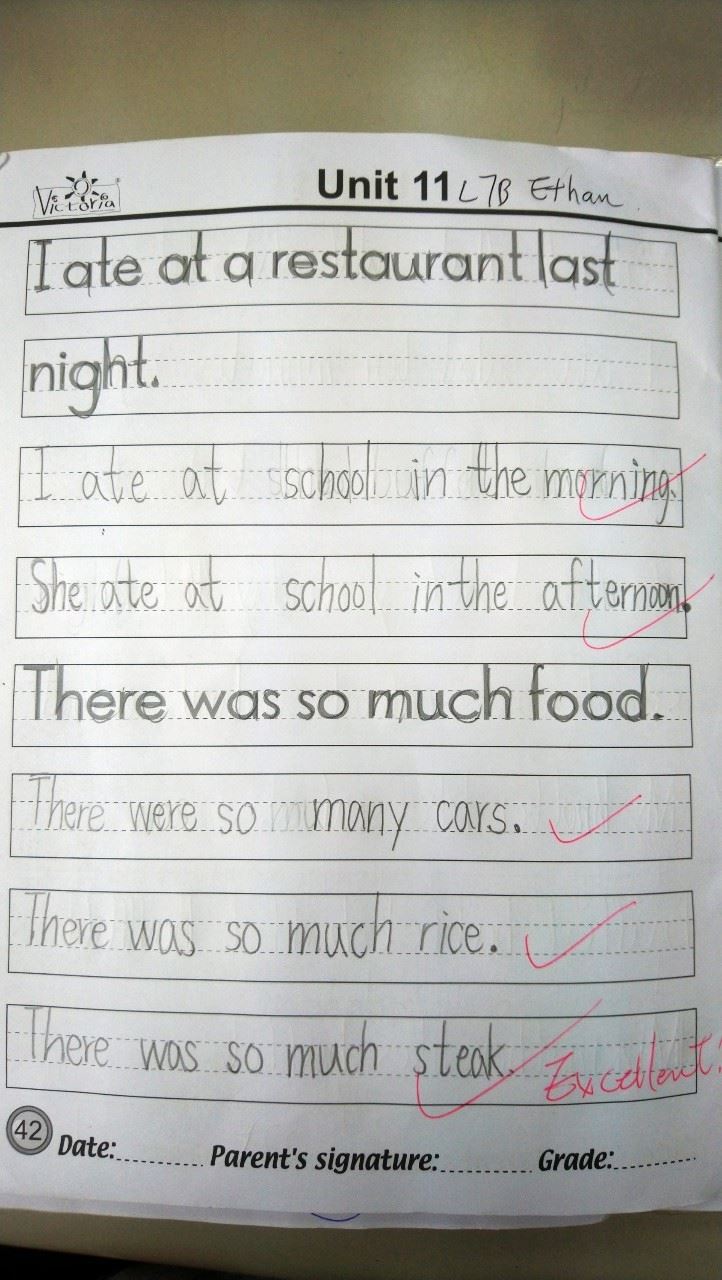 Victoria
Unit 11 L7B Ethan
I ate at a restaurant last
night.
I ate at school in the morning.
She ate at school in the afternoon.
There was so much food.
There were so many cars.
There was so much rice.
There was so much steak.
Excellent!
42 Date: Parent's signature: Grade: